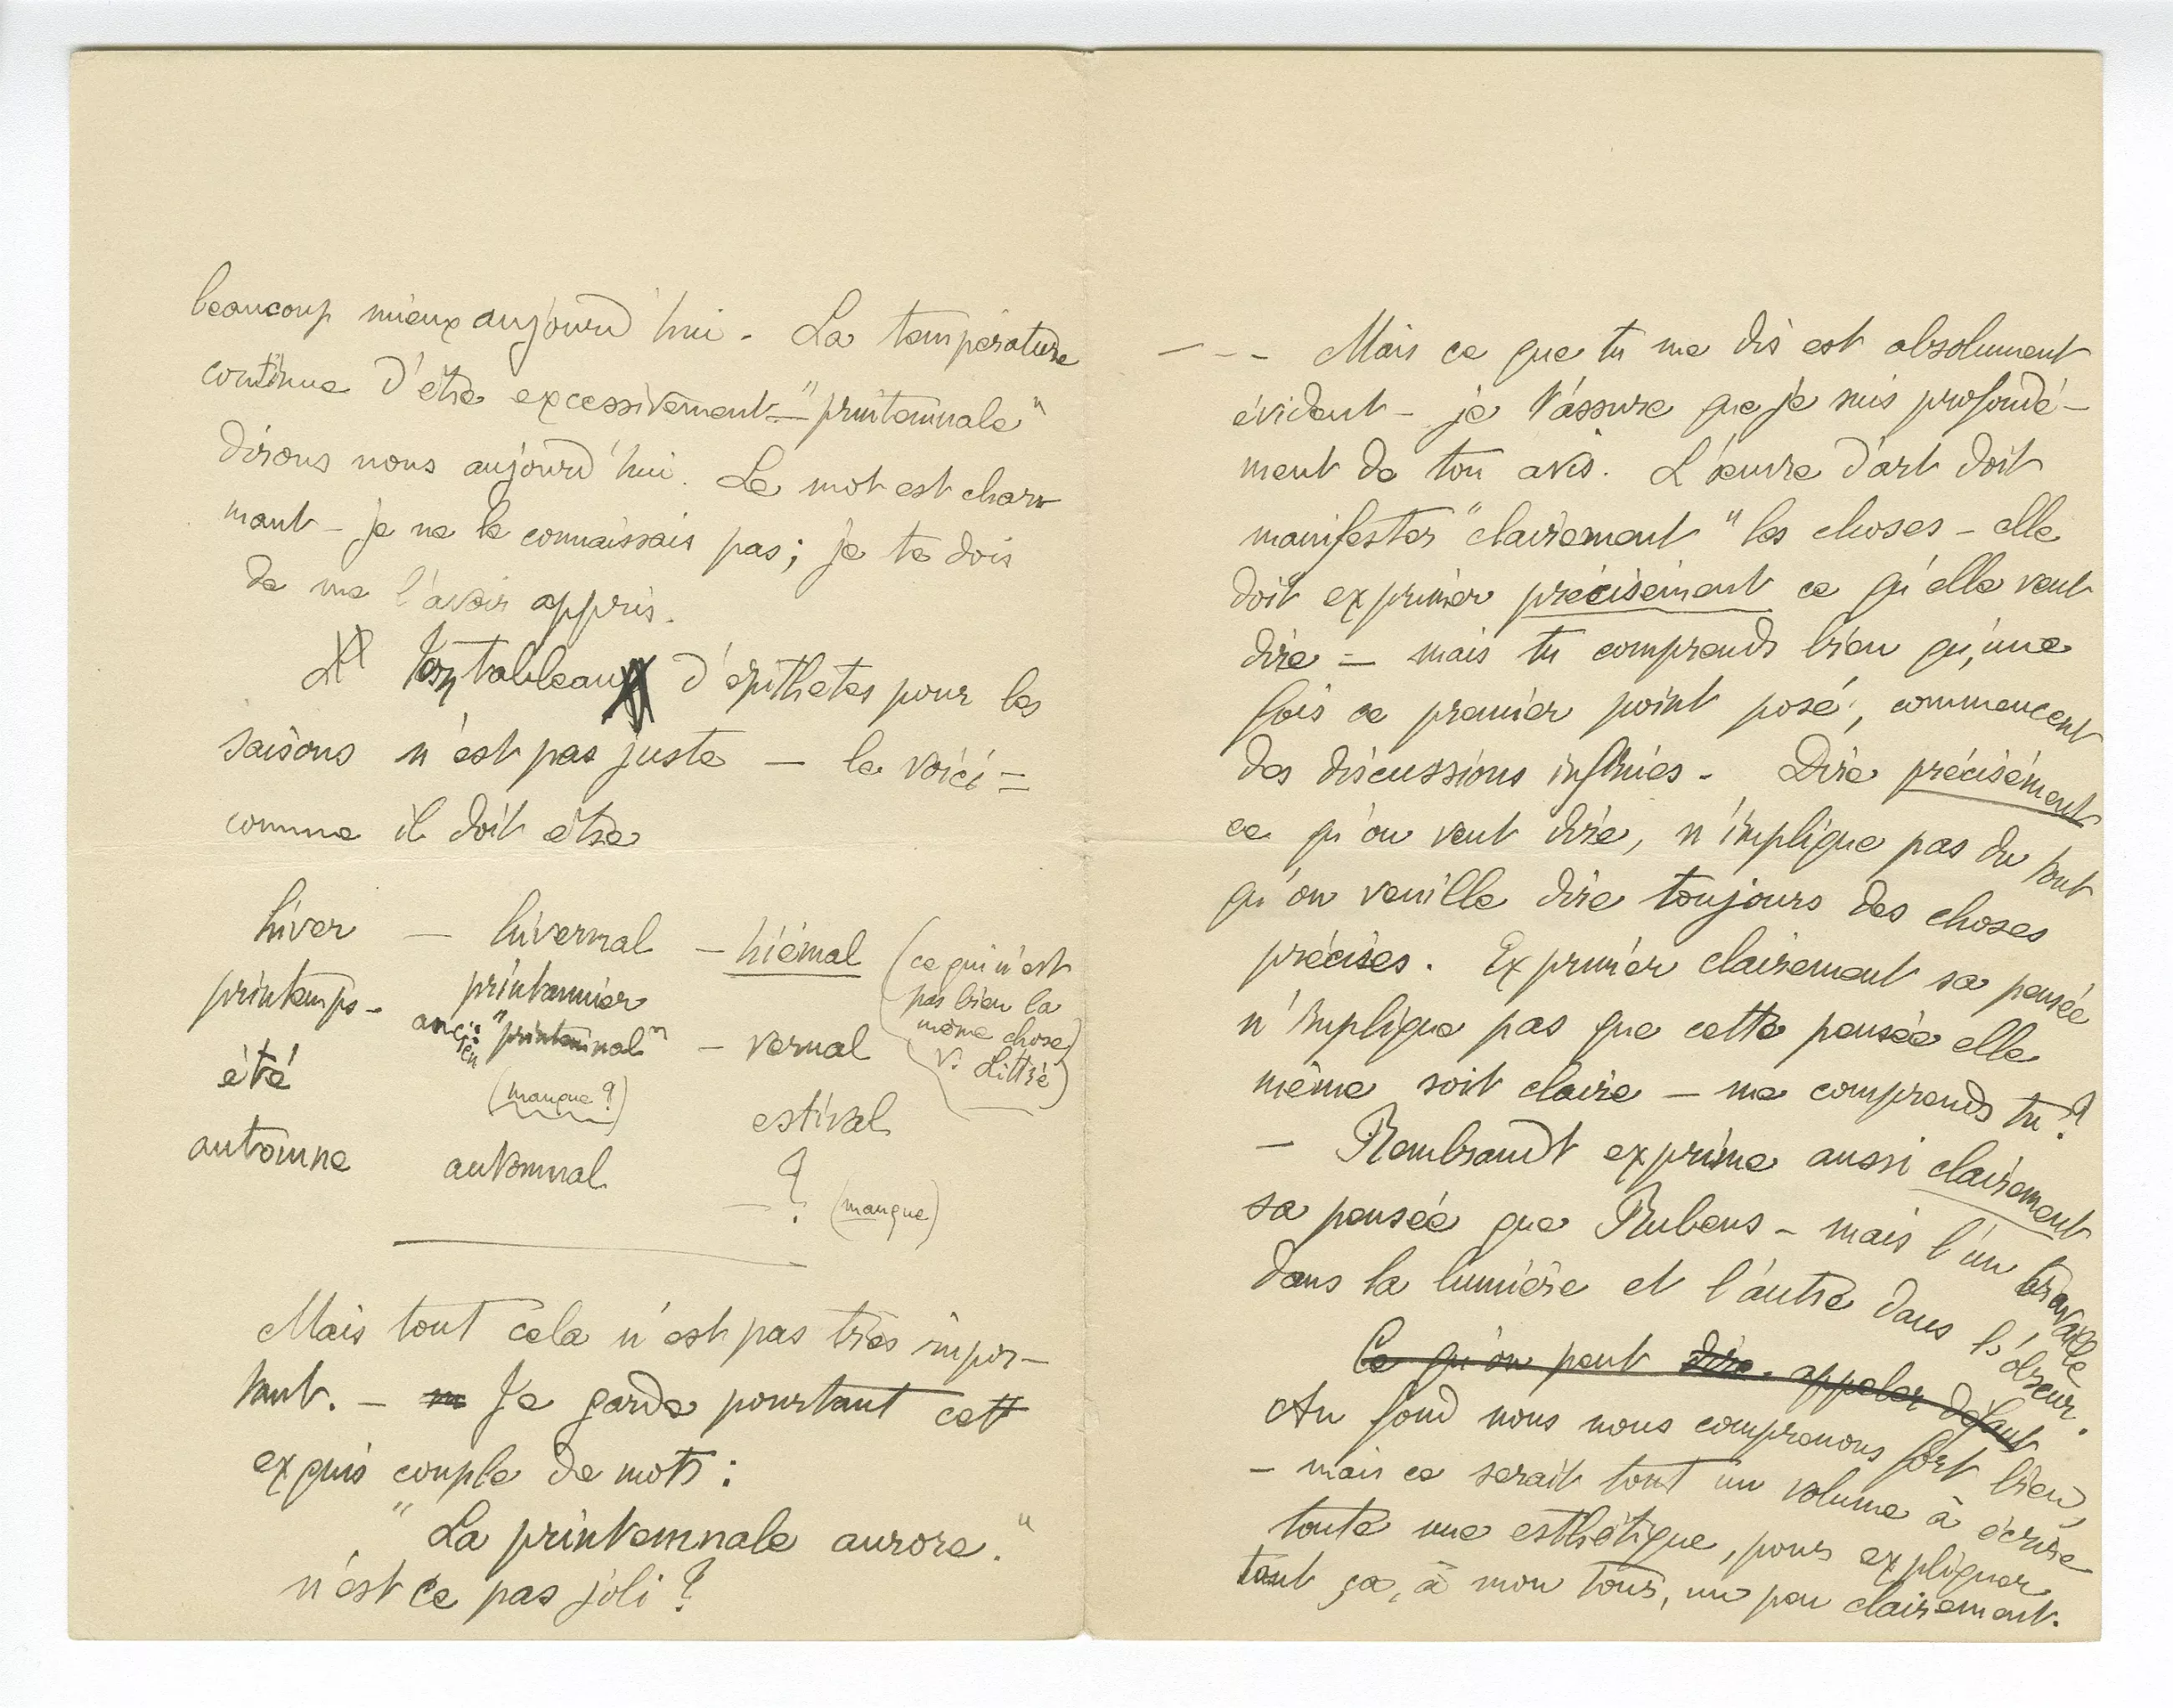 beaucoup mieux aujourd'hui. La température
continue d'être excessivement — "printemnale"
dirons nous aujourd'hui. Le mot est char-
mant — je ne le connaissais pas; je te dois
de me l'avoir appris.
Ton tableau d'épithetes pour les
saisons n'est pas juste — le voici =
comme il doit être
hiver — hivernal — hiémal (ce qui n'est
pas bien la
même chose
v. Littré)
printemps - printannier
ancien "printemnal" — vernal
été (manque?) estival
automne automnal — ? (manque)
Mais tout cela n'est pas très impor-
tant. — Je garde pourtant cett
exquis couple de mots :
" La printemnale aurore. "
n'est ce pas joli ?
— - - Mais ce que tu me dis est absolument
évident — je t'assure que je suis profondé-
ment de ton avis. L'œuvre d'art doit
manifester "clairement" les choses — elle
doit exprimer précisément ce qu'elle veut
dire — mais tu comprends bien qu'une
fois ce premier point posé, commencent
des discussions infinies - Dire précisément
ce qu'on veut dire, n'implique pas du tout
qu'on veuille dire toujours des choses
précises. Exprimer clairement sa pensée
n'implique pas que cette pensée elle
même soit claire — me comprends tu ?
— Rembrandt exprime aussi clairement
sa pensée que Rubens — mais l'un travaille
dans la lumière et l'autre dans l'obscur.
Ce qu'on peut dire. appeler défaut
Au fond nous nous comprenons fort bien,
— mais ce serait tout un volume à écrire
toute une esthétique, pour expliquer
tout ça, à mon tour, un peu clairement.